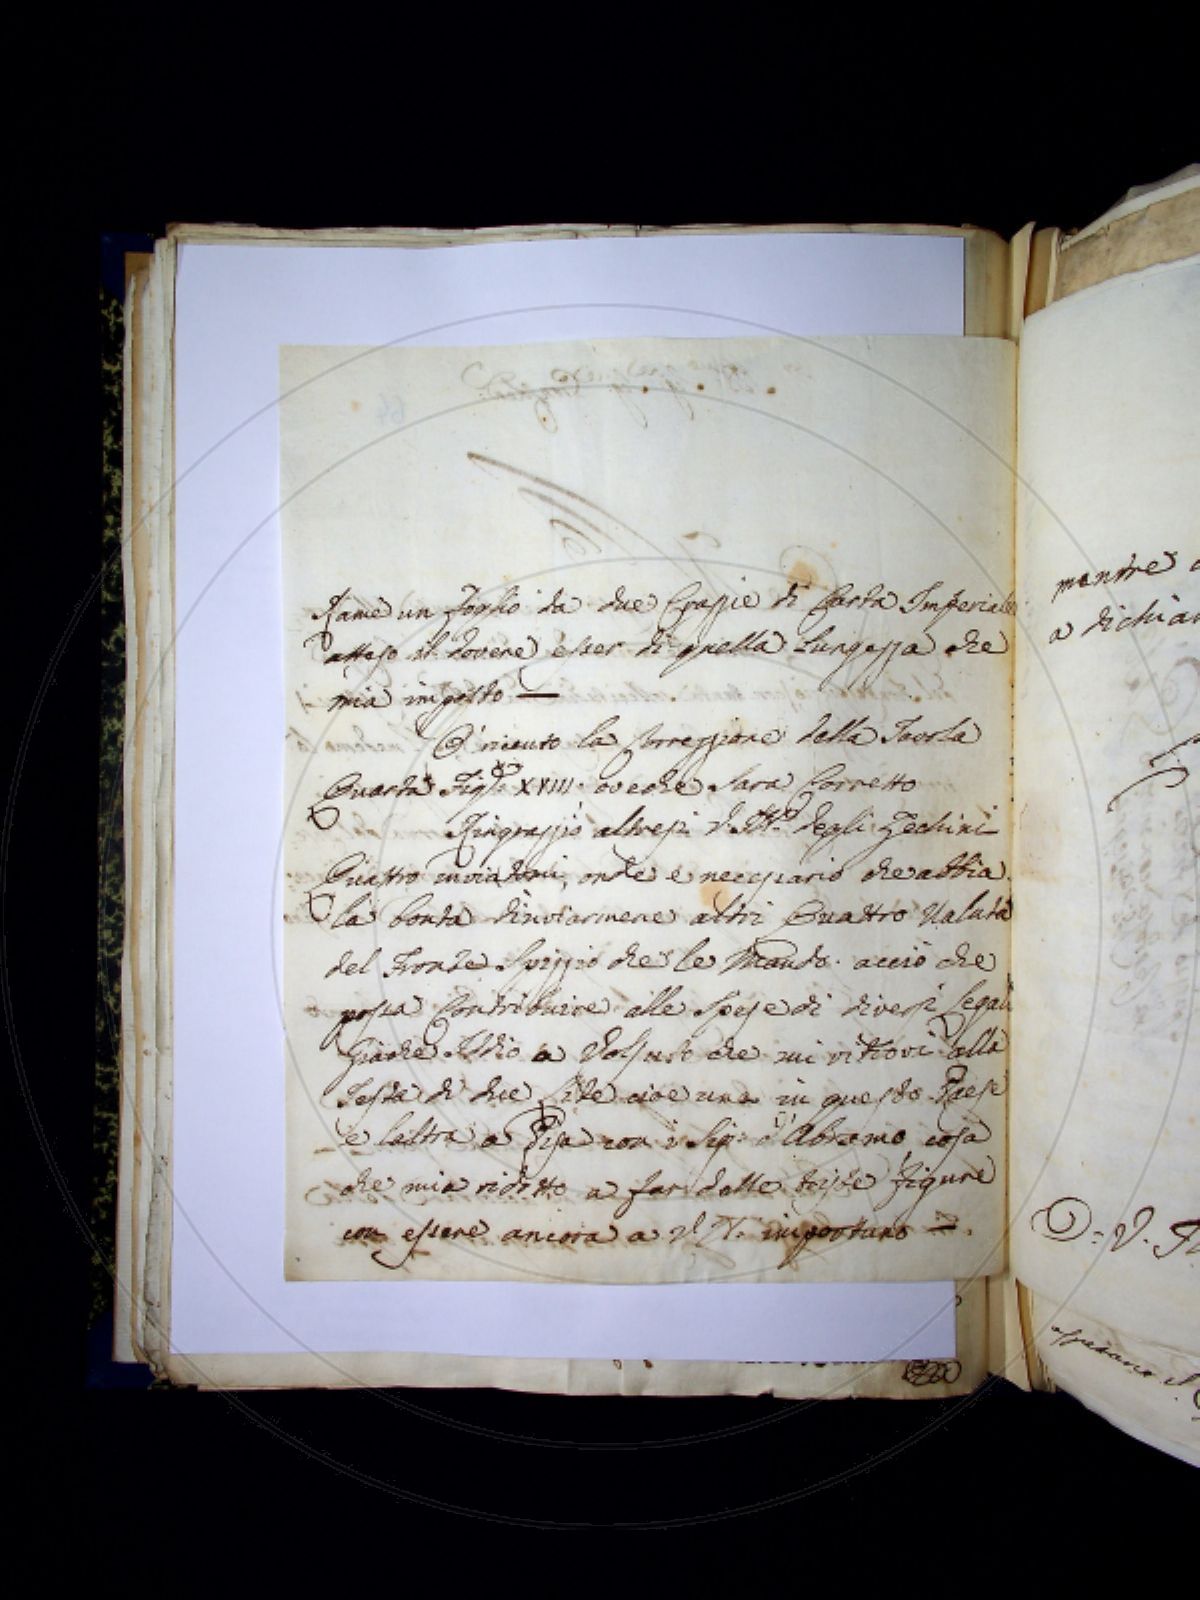 Rame un foglio da due Crazzie di Carta Imperiale
atteso il dovere esser di quella Lungezza che
mia imposto —
O' riceuto la Correzzione della Tavola
Quarta Fig.ª XVIII. oveche sara Corretto
Ringrazzio altresi V. Ill.ª degli Zechini
Quattro inviatomi, onde e necessario che abbia
la bonta d'inviarmene altri Quattro Valuta
del Fronte Spizzio che le Mando. accio che
possa Contribuire alle Spese di diversi Legali
Giache Iddio a Volsuto che mi ritrovi alla
Testa di due Lite cioe una in questo Paese
e laltra a Pisa con i Sig: d'Abramo cosa
che mia ridotto a far delle triste figure
con essere ancora a V. S. importuno —.
mentre
a dichiar
D: V.